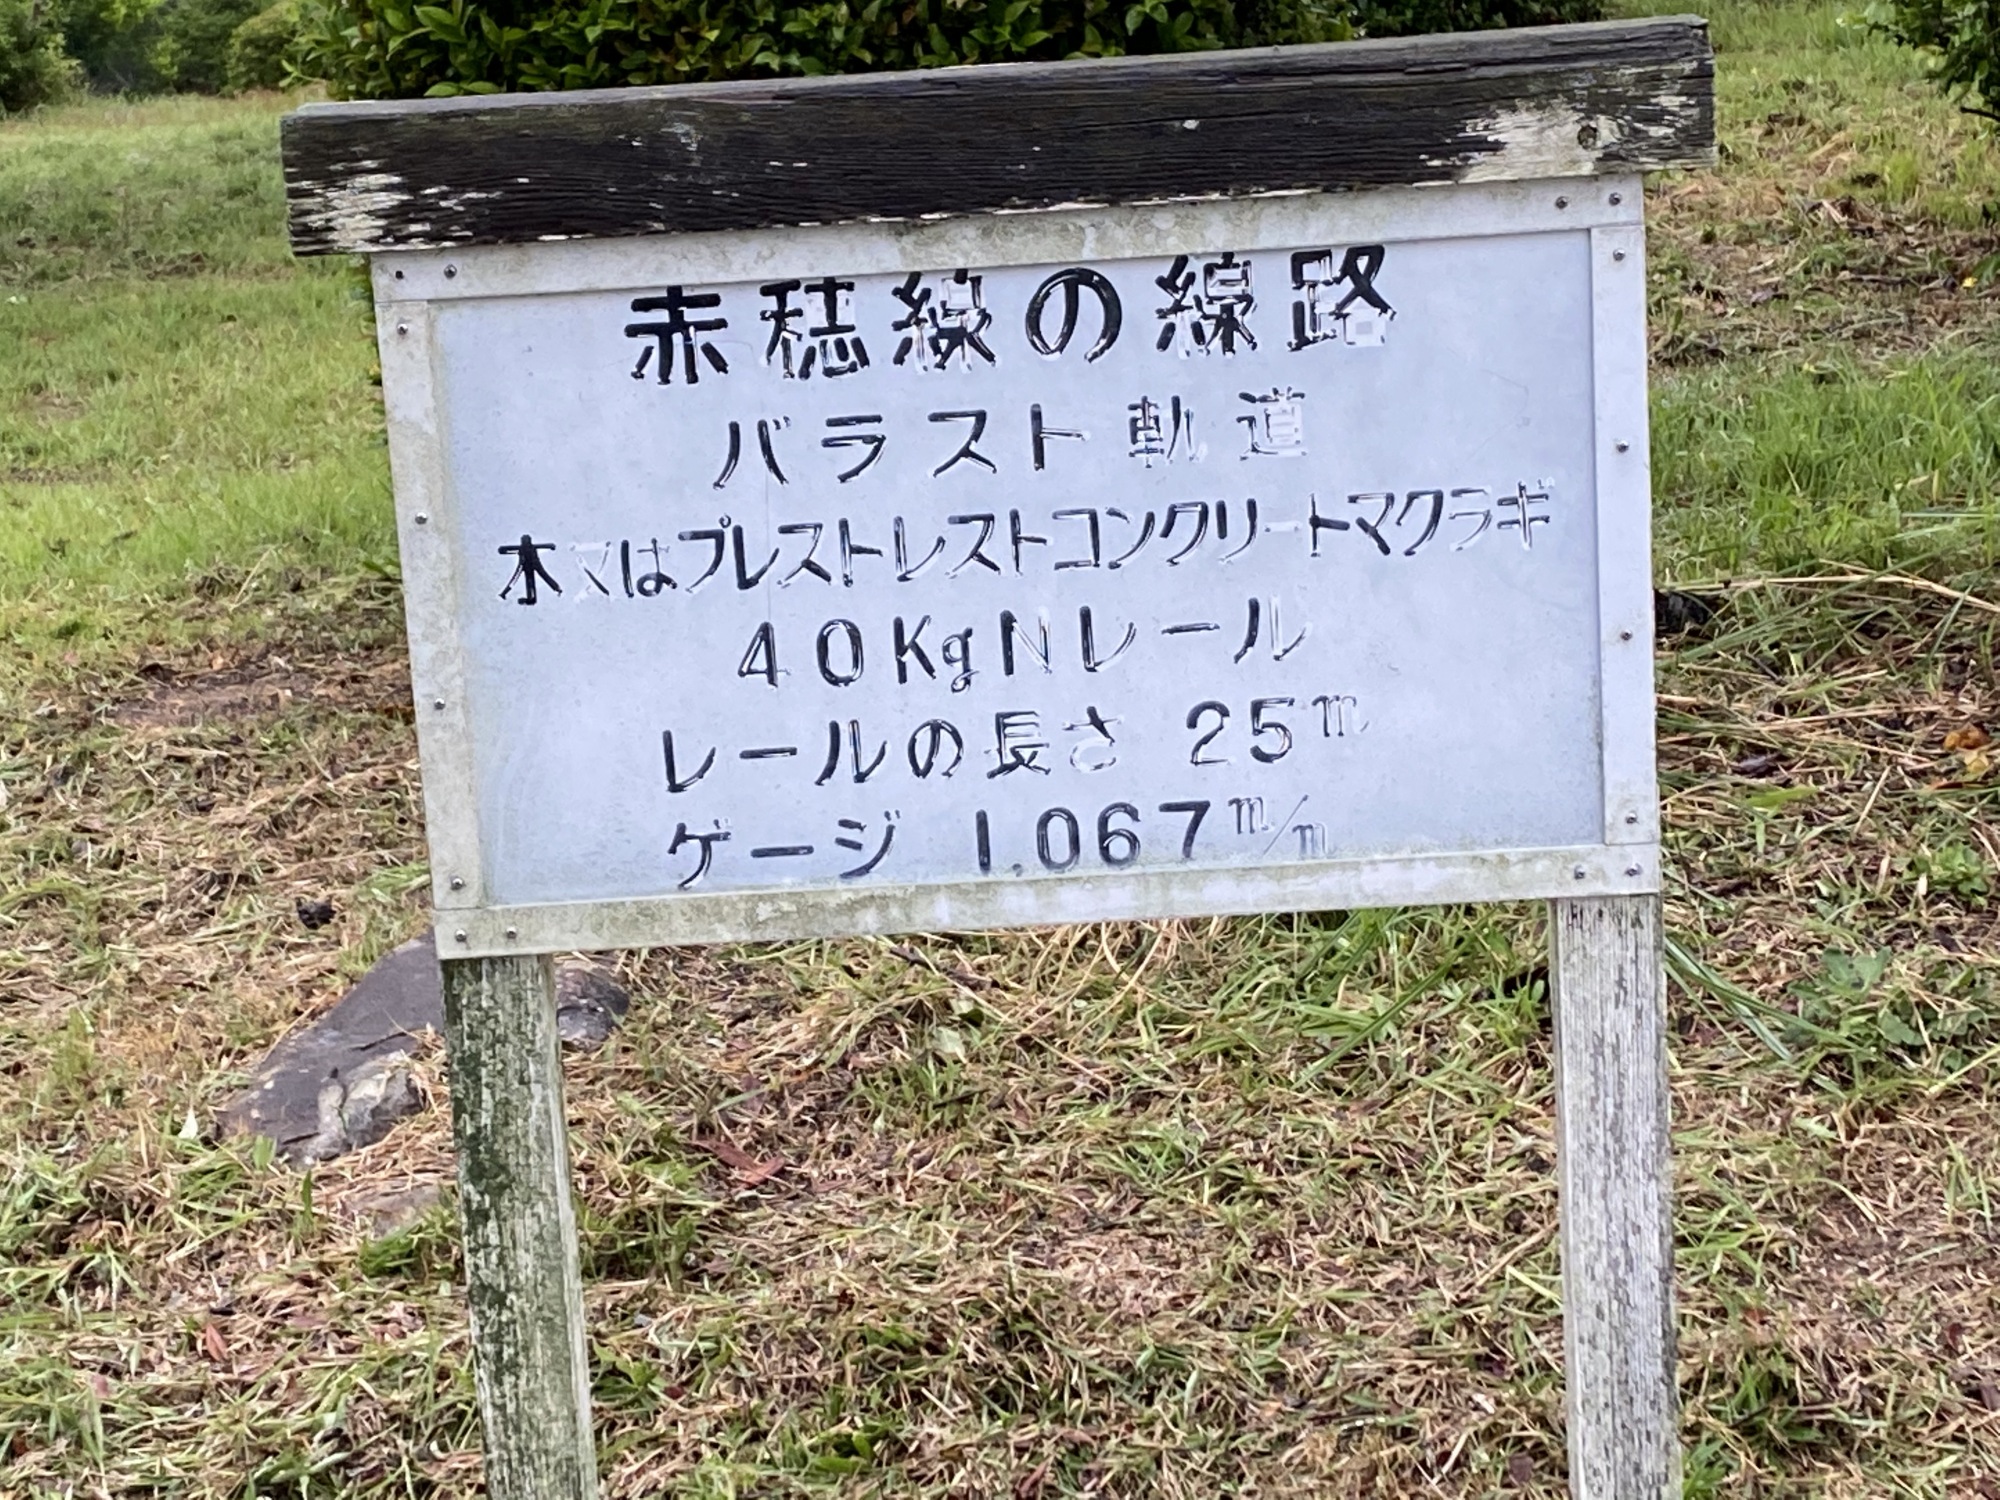 赤穂線の線路
バラスト軌道
木又はプレストレストコンクリートマクラギ
40KgNレール
レールの長さ 25m
ゲージ 1,067m/m